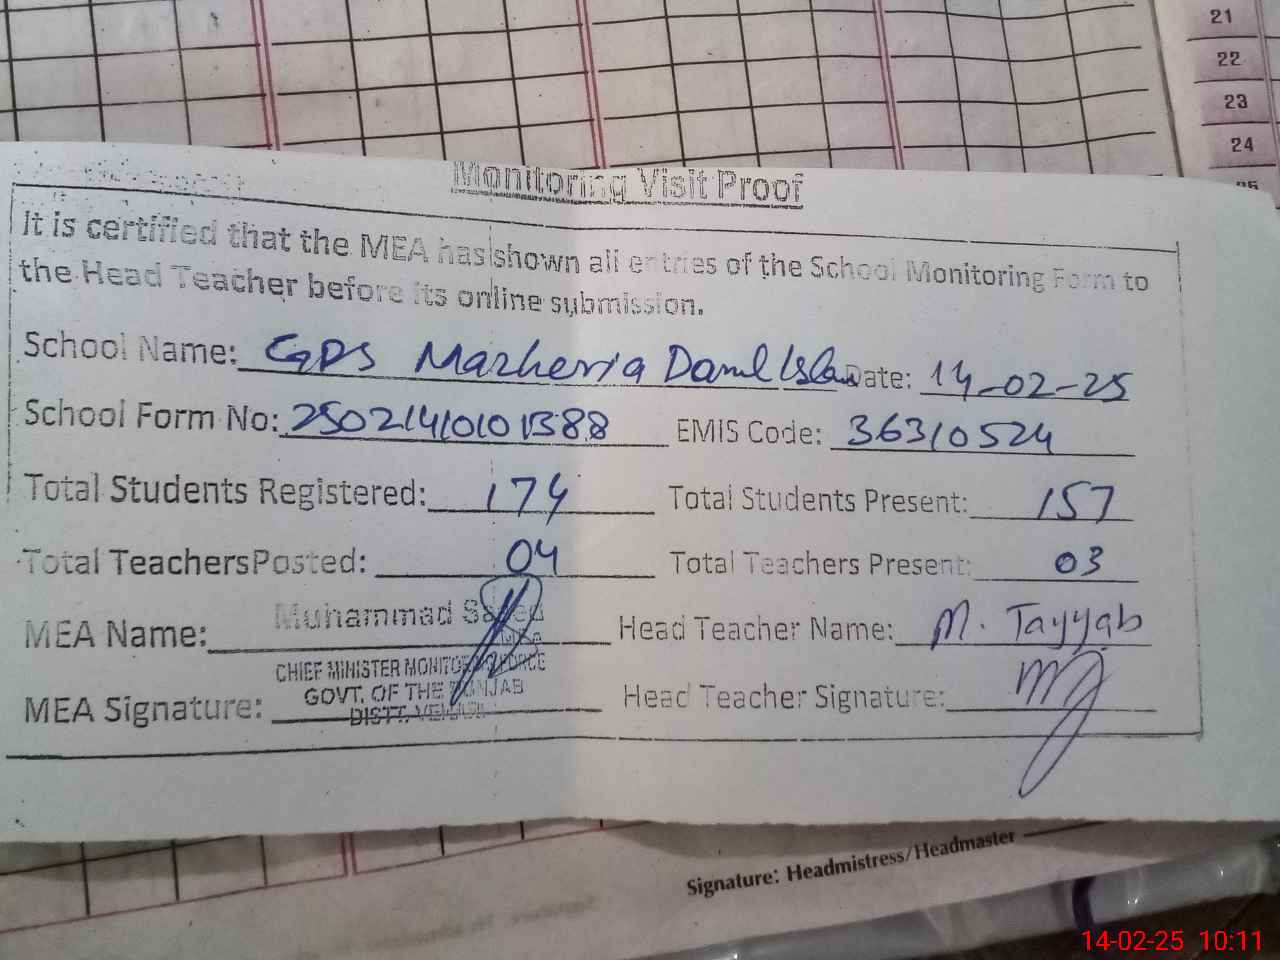 21
22
23
24
Monitoring Visit Proof
It is certified that the MEA has shown all entries of the School Monitoring Form to
the Head Teacher before its online submission.
School Name: GPS Mazheria Darul Islam Date: 14-02-25
School Form No: EMIS Code: 36310524
Total Students Registered: 174 Total Students Present: 157
Total Teachers Posted: 04 Total Teachers Present: 03
MEA Name: Muhammad Saeed Head Teacher Name: M. Tayyab
CHIEF MINISTER MONITORING FORCE
GOVT. OF THE PUNJAB
MEA Signature: DISTT. Head Teacher Signature:
Signature: Headmistress/Headmaster
14-02-25 10:11